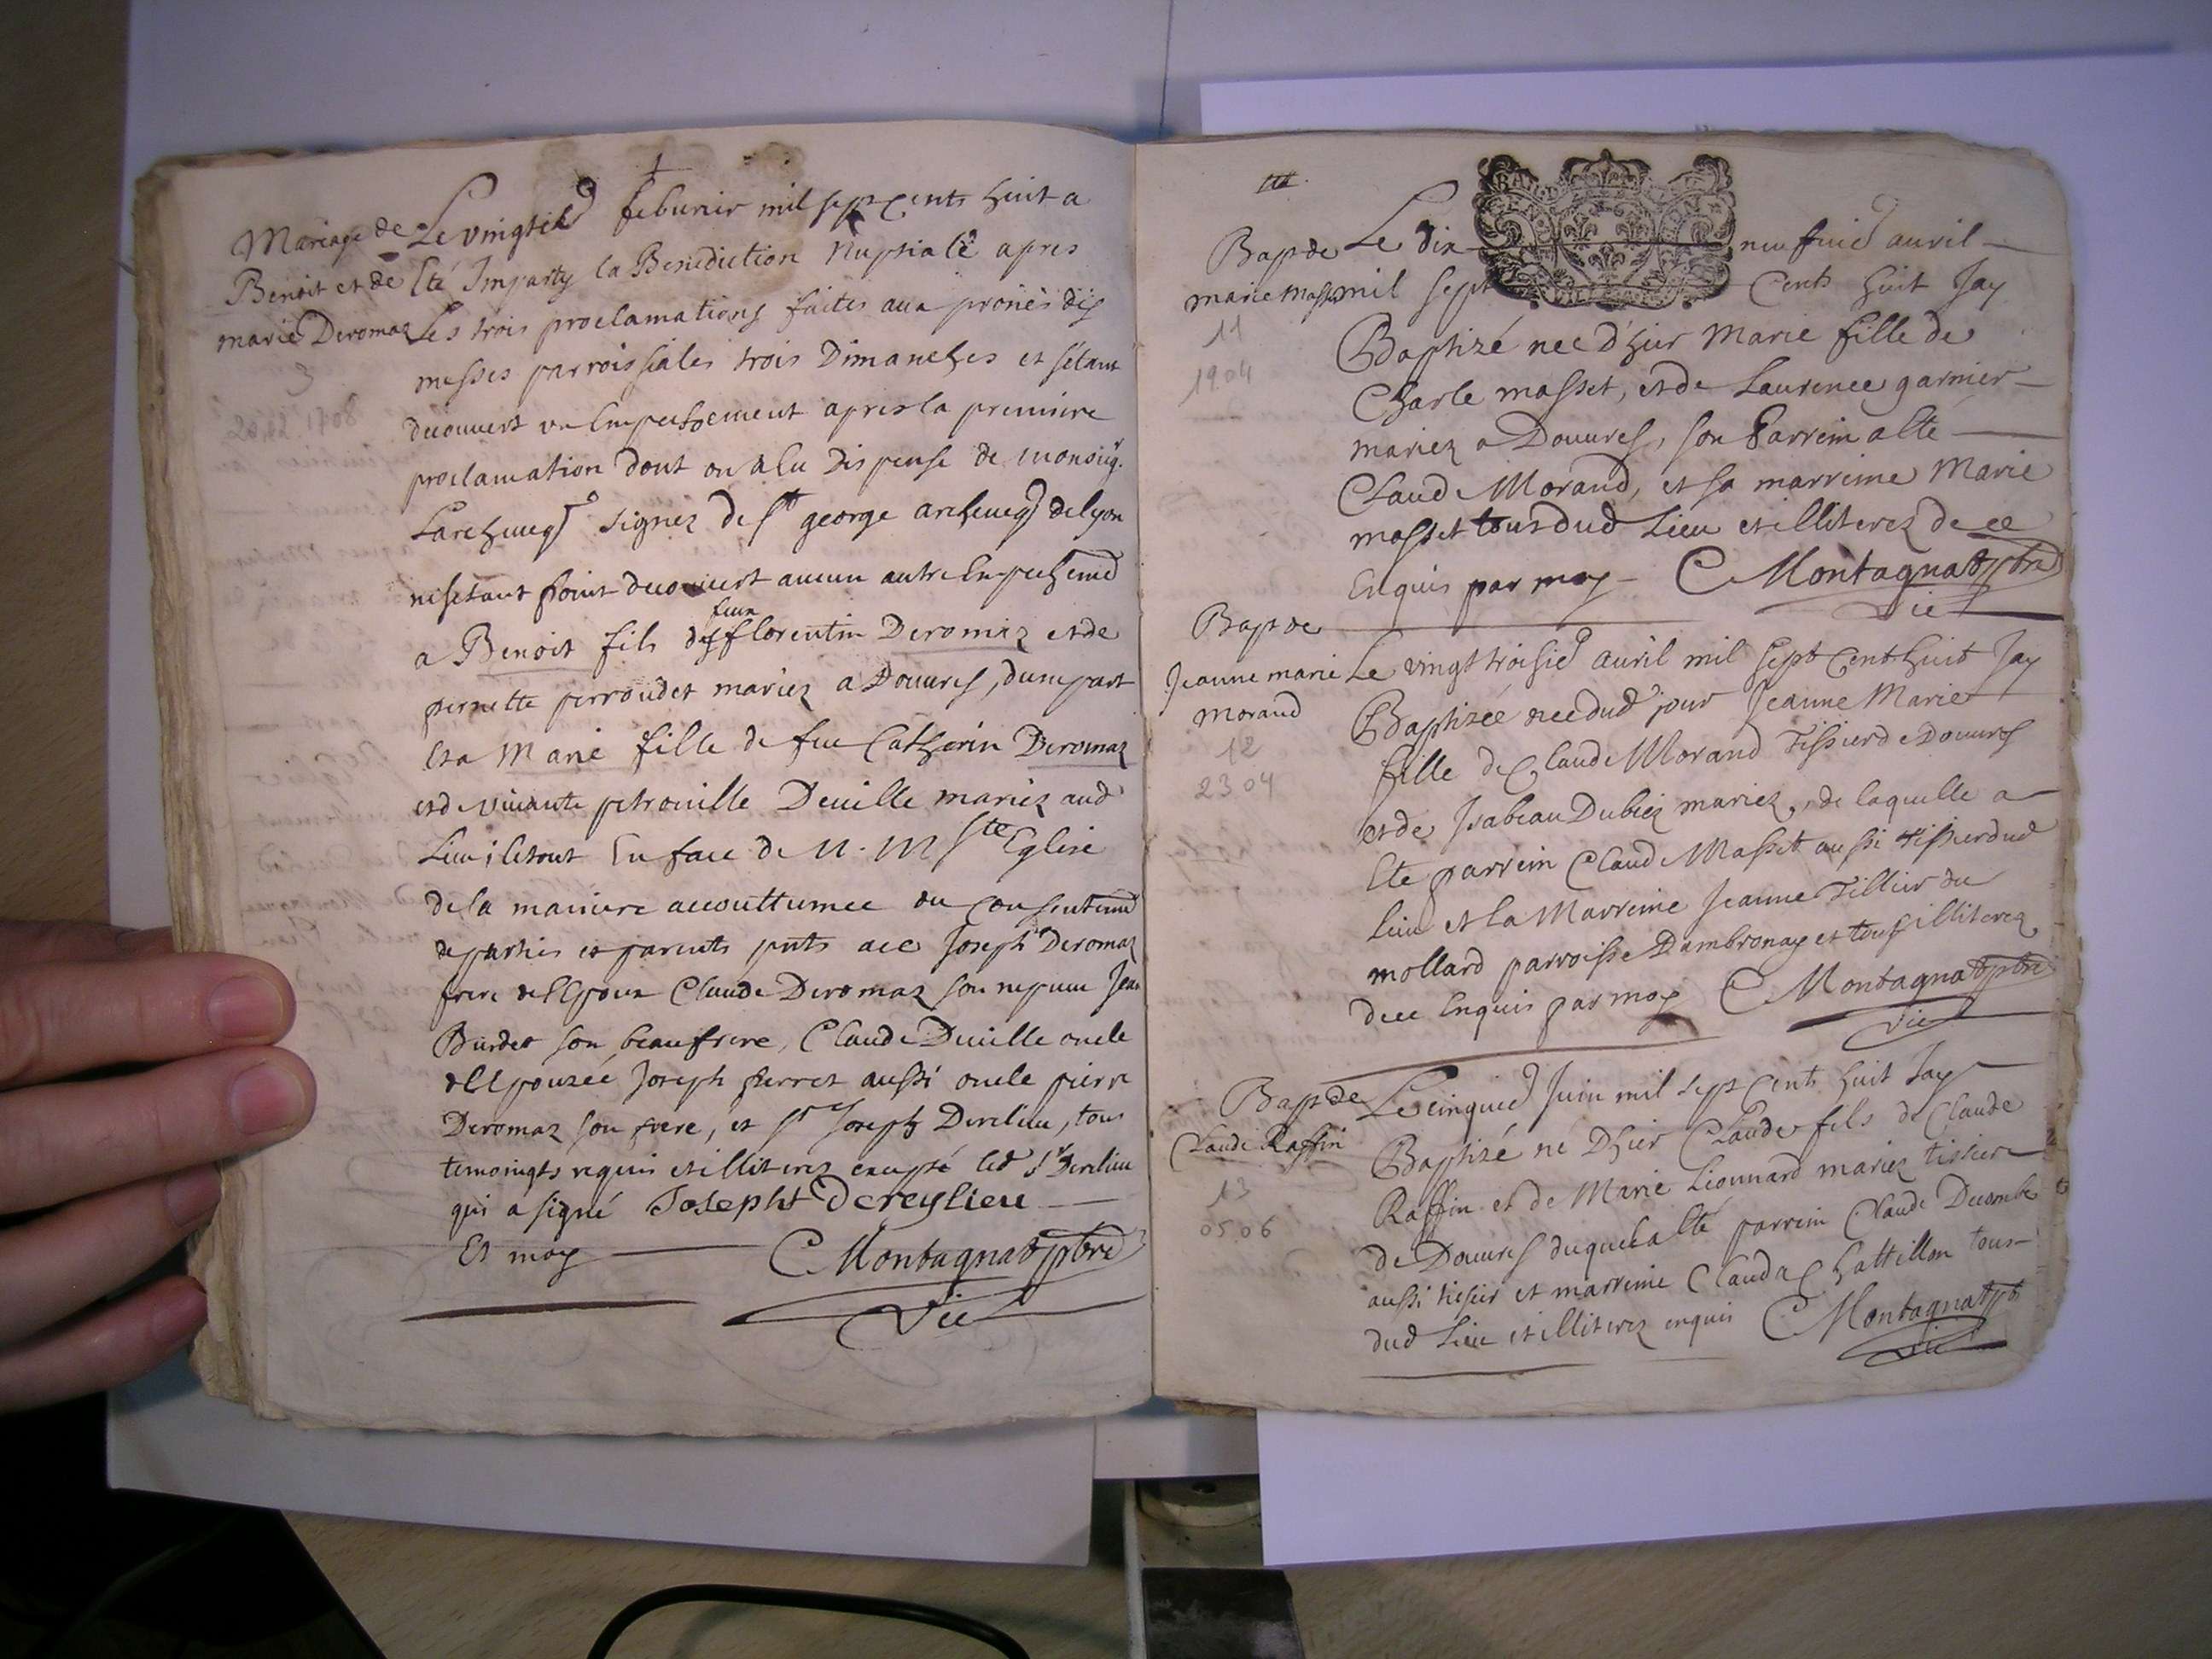 Mariage de
Benoit et de
marie Deromaz
3
20.02.1708
Le vingtied feburier mil sept cents huit a
Eté Imparty la Benediction Nuptiale apres
Les trois proclamations faites aux prones des
messes parroissiales trois Dimanches et s'étant
decouvert un Empechement apres la premiere
proclamation dont on a Eu Dispense de monsiegr
Larcheveqe signez de St george archeveqe de lyon
ne setant point decouvert aucun autre Empechemed
feux
a Benoit fils de florentin Deromaz et de
pernette perroudet mariez a Douvres, dune part
Et a Marie fille de feu Catherin Deromaz
et de vivante petronille Deville mariez aud
Lieu; le tout En face de N. M Ste Eglise
de la maniere accouttumee du consentemd
de parties et parents pnts avec Joseph Deromaz
frere de Lepoux Claude Deromaz son nepueu Jean
Burdet son beaufrere, Claude Deville oncle
de Lepouzée Joseph perret aussi oncle pierre
Deromaz son frere, et sr Joseph Derelieu, tous
temoingts requis et illiterez excepté led sr Derelieu
qui a signé Josepht Dereylieu
Et moy C Montagnat ptre
vic
Bapt de
marie masset
11
1904
Le dix neufuied auril
mil sept Cents huit Jay
Baptizé nee d'hier Marie fille de
Charle masset, et de Laurence garnier
mariez a Douures, son Parrein a Eté
Claude Morand, et sa marreine Marie
masset tous dud Lieu et illiterez de ce
Enquis par moy C Montagnat ptre
vic
Bapt de
Jeanne marie
morand
12
2304
Le vingt troisied auril mil sept Cent huit Jay
Baptizée nee dud jour Jeanne Marie
fille de Claude Morand Tissier de Douures
et de Isabeau Dubiez mariez, de laquelle a
Ete parrein Claude Masset aussi tissier dud
lieu et la Marreine Jeanne Tillier du
mollard parroisse Dambronay et tous illiterez
de ce Enquis par moy C Montagnat ptre
vic
Bapt de
Claude Raffin
13
0506
Le cinquied Juin mil sept Cents huit Jay
Baptizé né Dhier Claude fils de Claude
Raffin et de Marie Lionnard mariez tissier
de Douures duquel a Eté parrein Claude Decombe
aussi tissier et marreine Clauda Chattillon tous
dud Lieu et illiterez enquis C Montagnat pt
vic